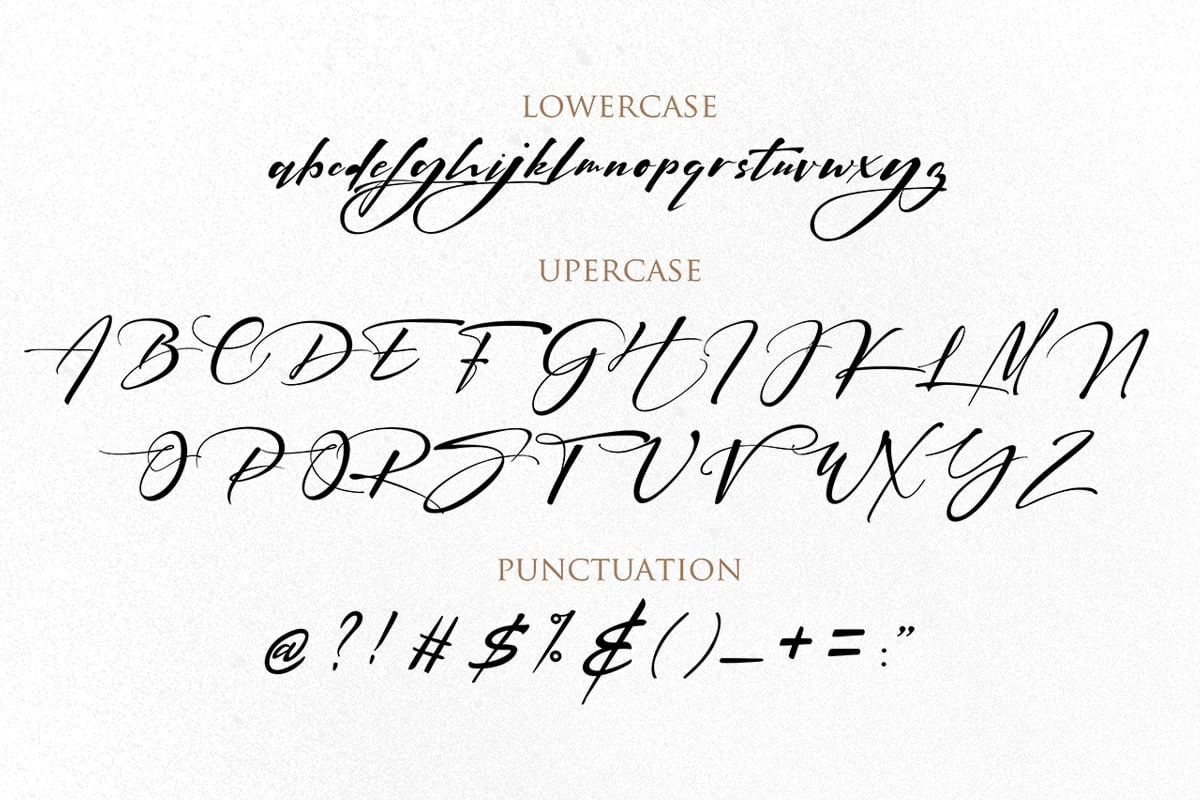 LOWERCASE
abcdefghijklmnopqrstuvwxyz
UPERCASE
ABCDEFGHIJKLMN
OPQRSTUVWXYZ
PUNCTUATION
@?!#$%&()_+=:”